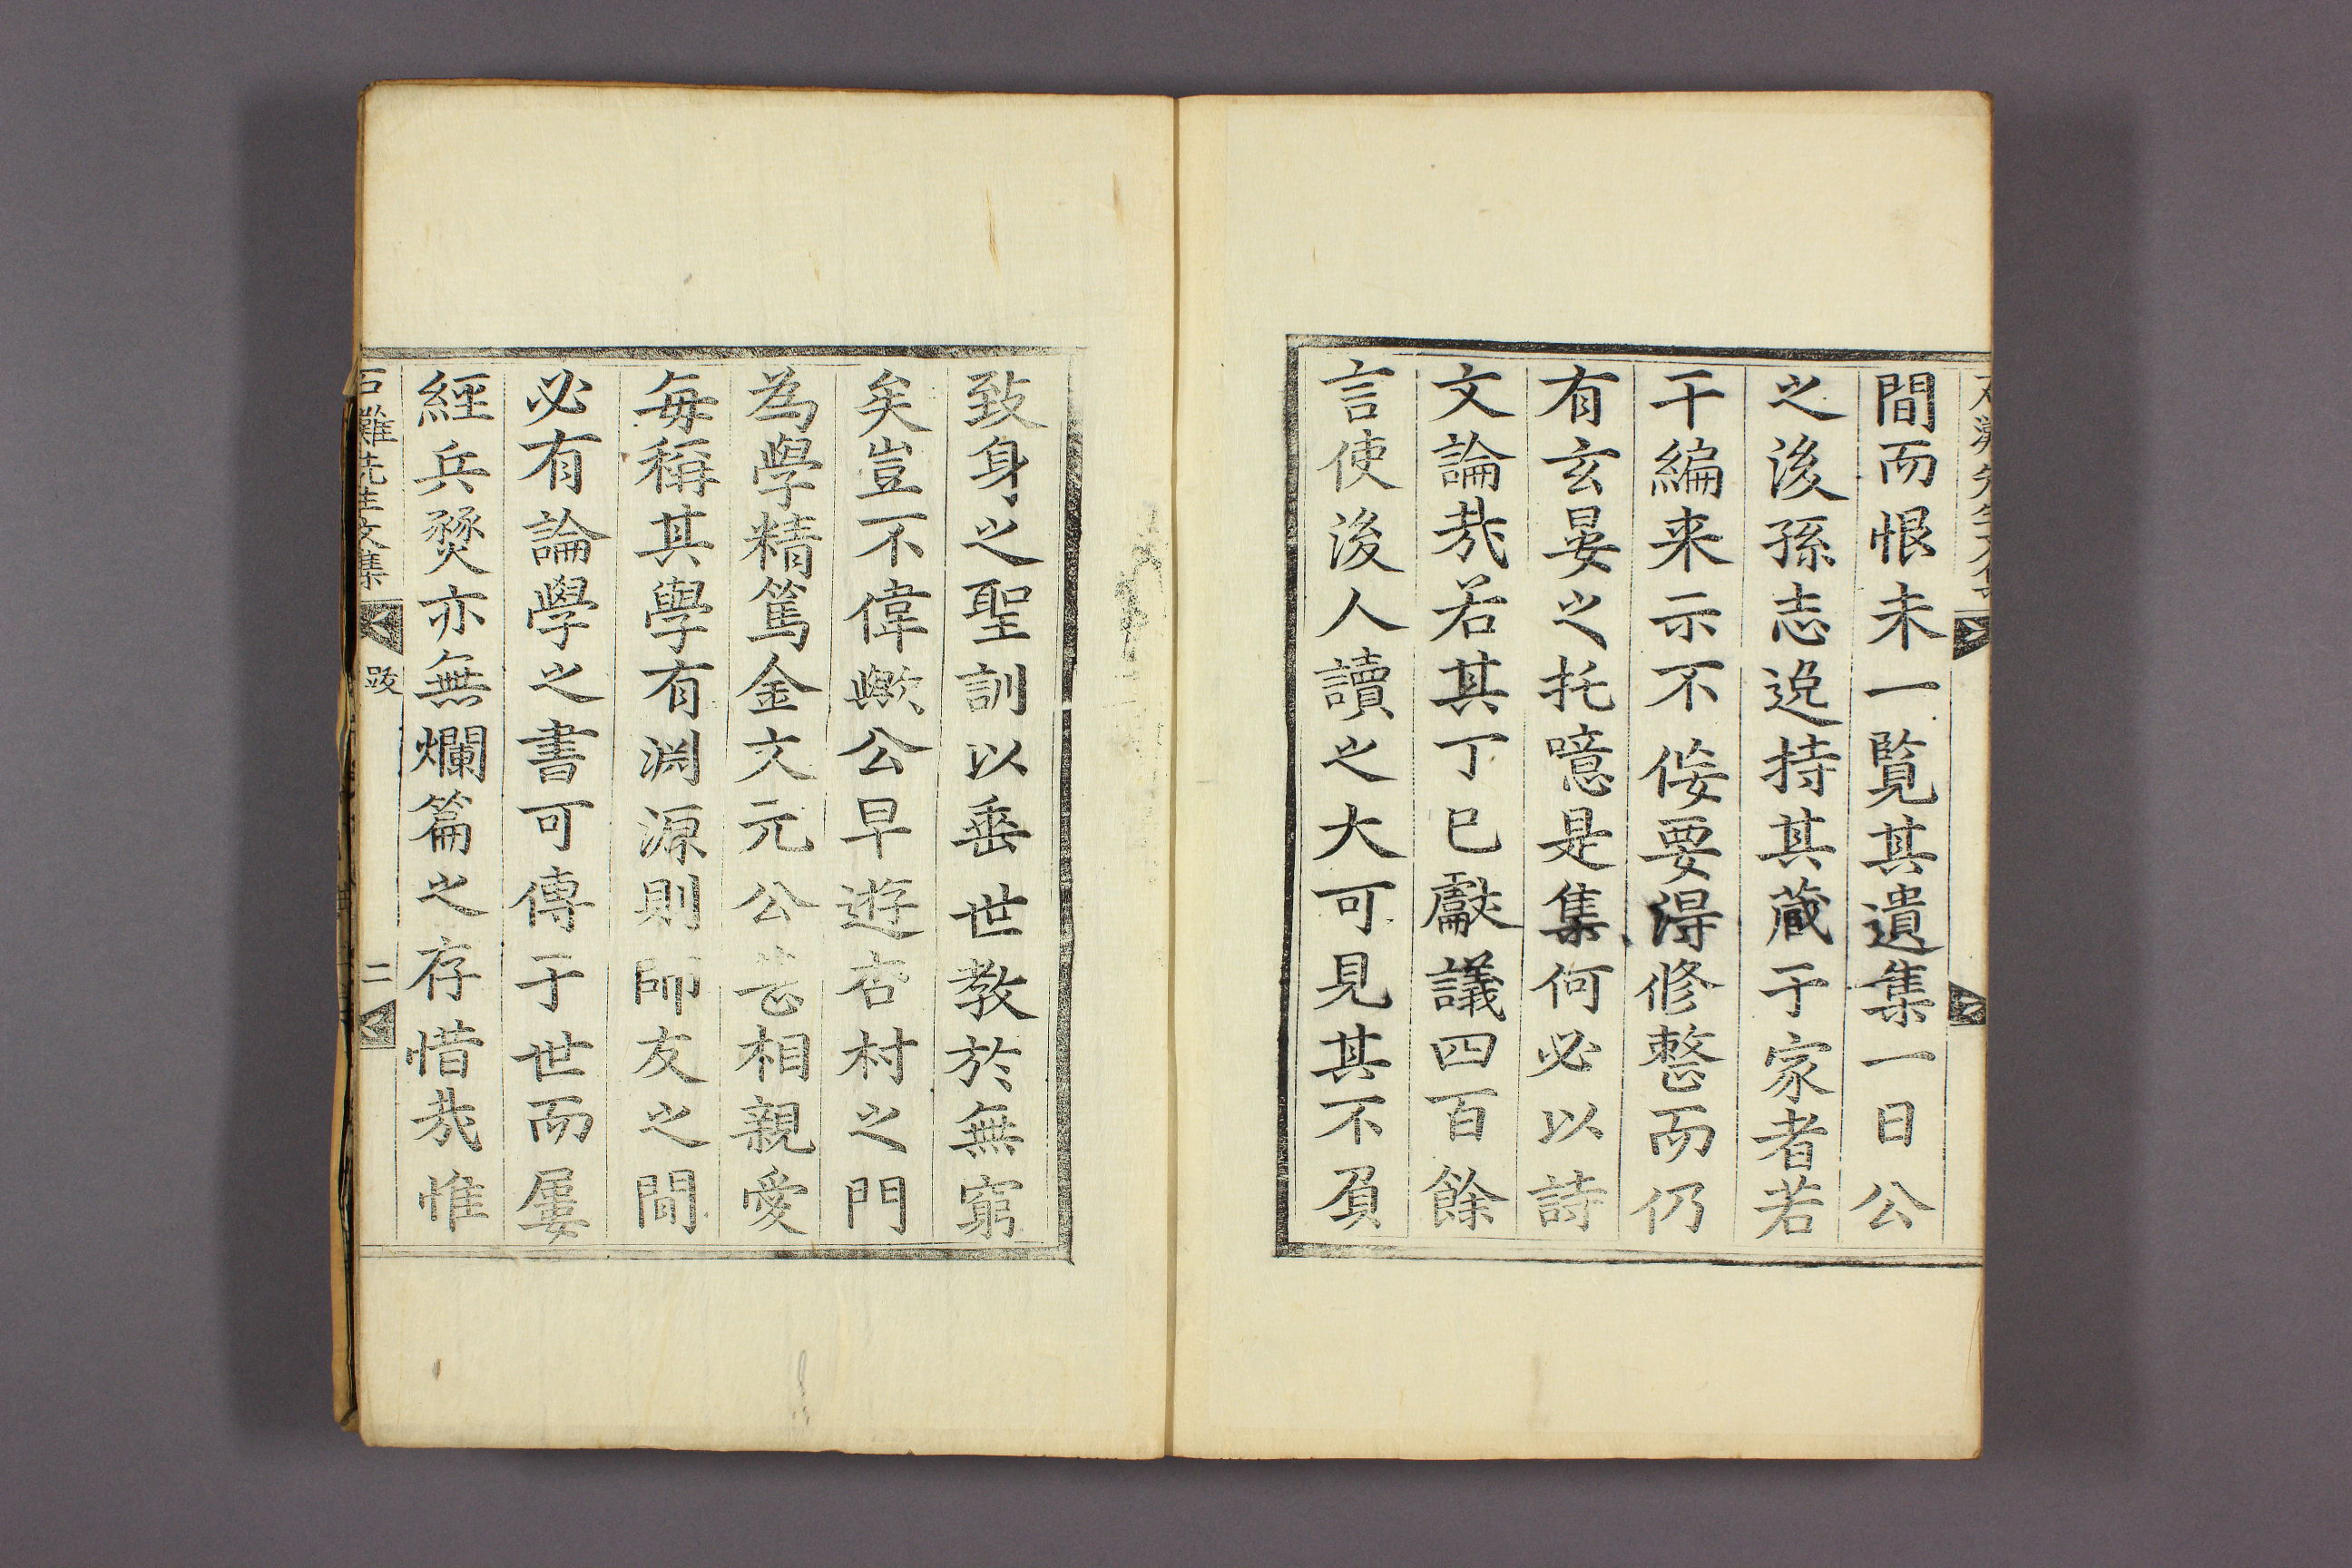 間而恨未一覧其遺集一日公
之後孫志逸持其蔵于家者若
干編来示不侫要得修整而仍
有玄晏之托噫是集何必以詩
文論㢤若其丁巳獻議四百餘
言使後人讀之大可見其不負
致身之聖訓以垂世教於無窮
矣豈不偉歟公早遊杏村之門
為學精篤金文元公甚相親愛
毎稱其學有淵源則師友之間
必有論學之書可傳于世而屢
經兵燹亦無爛篇之存惜㢤惟
石灘先生文集
跋
二